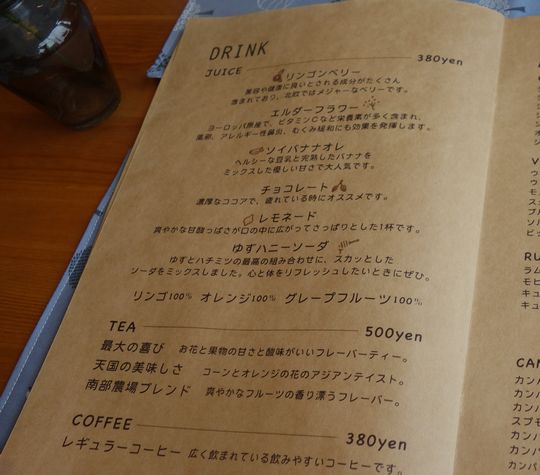 DRINK
JUICE 380yen
リンゴンベリー
美容や健康に良いとされる成分がたくさん
含まれており、北欧ではメジャーなベリーです。
エルダーフラワー
ヨーロッパ原産で、ビタミンCなど栄養素が多く含まれ、
風邪、アレルギー性鼻炎、むくみ緩和にも効果を発揮します。
ソイバナナオレ
ヘルシーな豆乳と完熟したバナナを
ミックスした優しい甘さで大人気です。
チョコレート
濃厚なココアで、疲れている時にオススメです。
レモネード
爽やかな甘酸っぱさが口の中に広がってさっぱりとした1杯です。
ゆずハニーソーダ
ゆずとハチミツの最高の組み合わせに、スカッとした
ソーダをミックスしました。心と体をリフレッシュしたいときにぜひ。
リンゴ100% オレンジ100% グレープフルーツ100%
TEA 500yen
最大の喜び お花と果物の甘さと酸味がいいフレーバーティー。
天国の美味しさ コーンとオレンジの花のアジアンテイスト。
南部農場ブレンド 爽やかなフルーツの香り漂うフレーバー。
COFFEE 380yen
レギュラーコーヒー 広く飲まれている飲みやすいコーヒーです。
RU
ラム
モヒ
キュ
キュ
CAM
カンパ
カンパ
カンパ
スプモ
カンパ
カンパ
カンパ